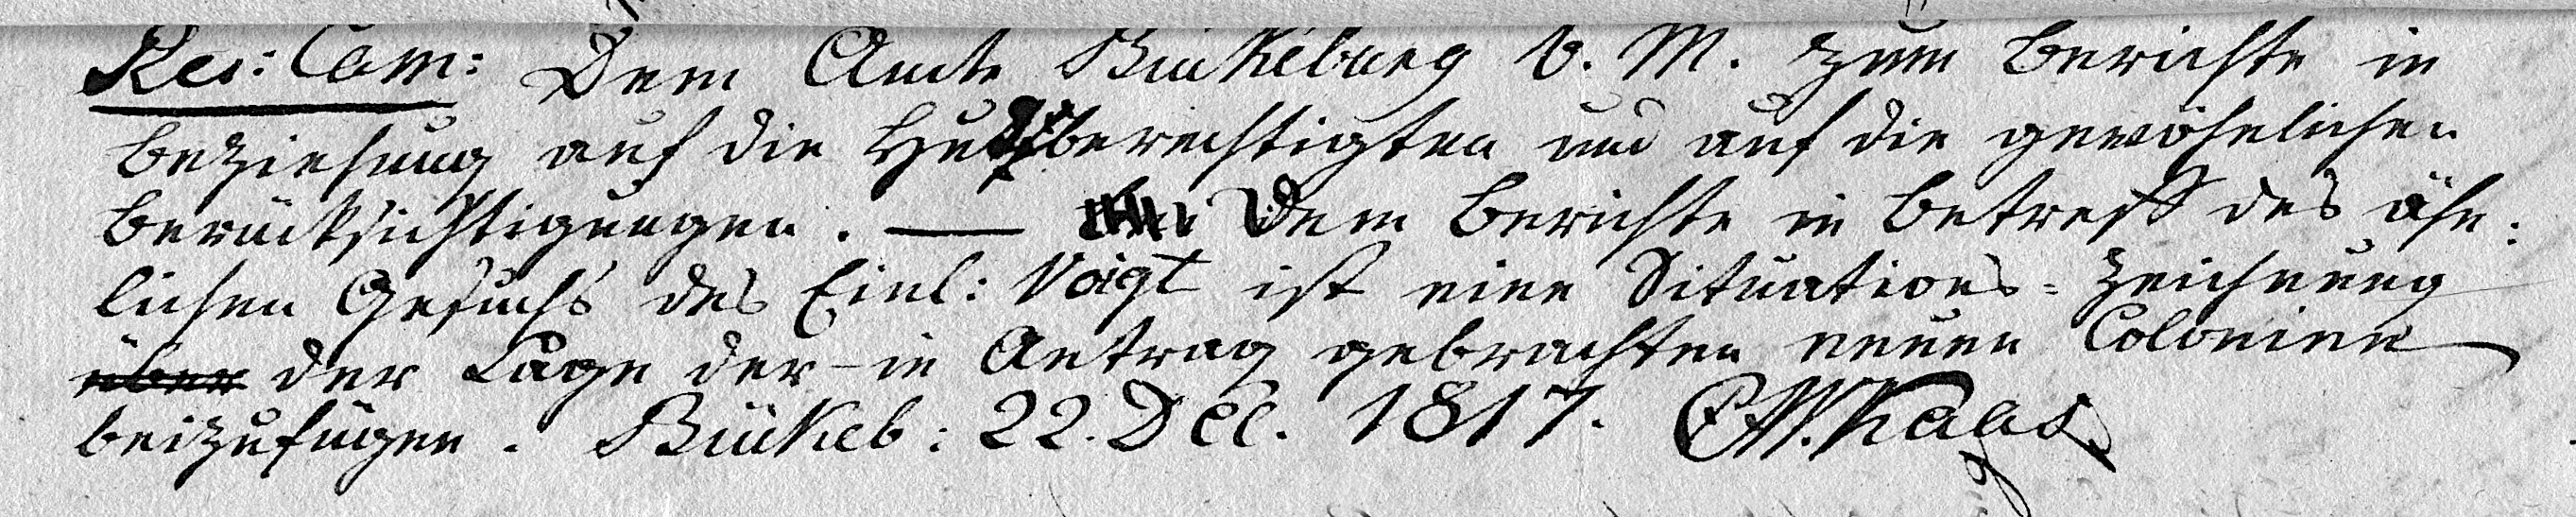 Res: Cam: Dem Amte Bückeburg V. M. zum Berichte in
Beziehung auf die Hudeberechtigten und auf die gewöhnlichen
Berücksichtigungen. — Dem Berichte in Betreff des ähn:
lichen Gesuchs des Einl: Voigt ist eine Situations-Zeichnung
über der Lage der in Antrag gebrachten neuen Colonien
beizufügen. Bückeb: 22. Dec. 1817.